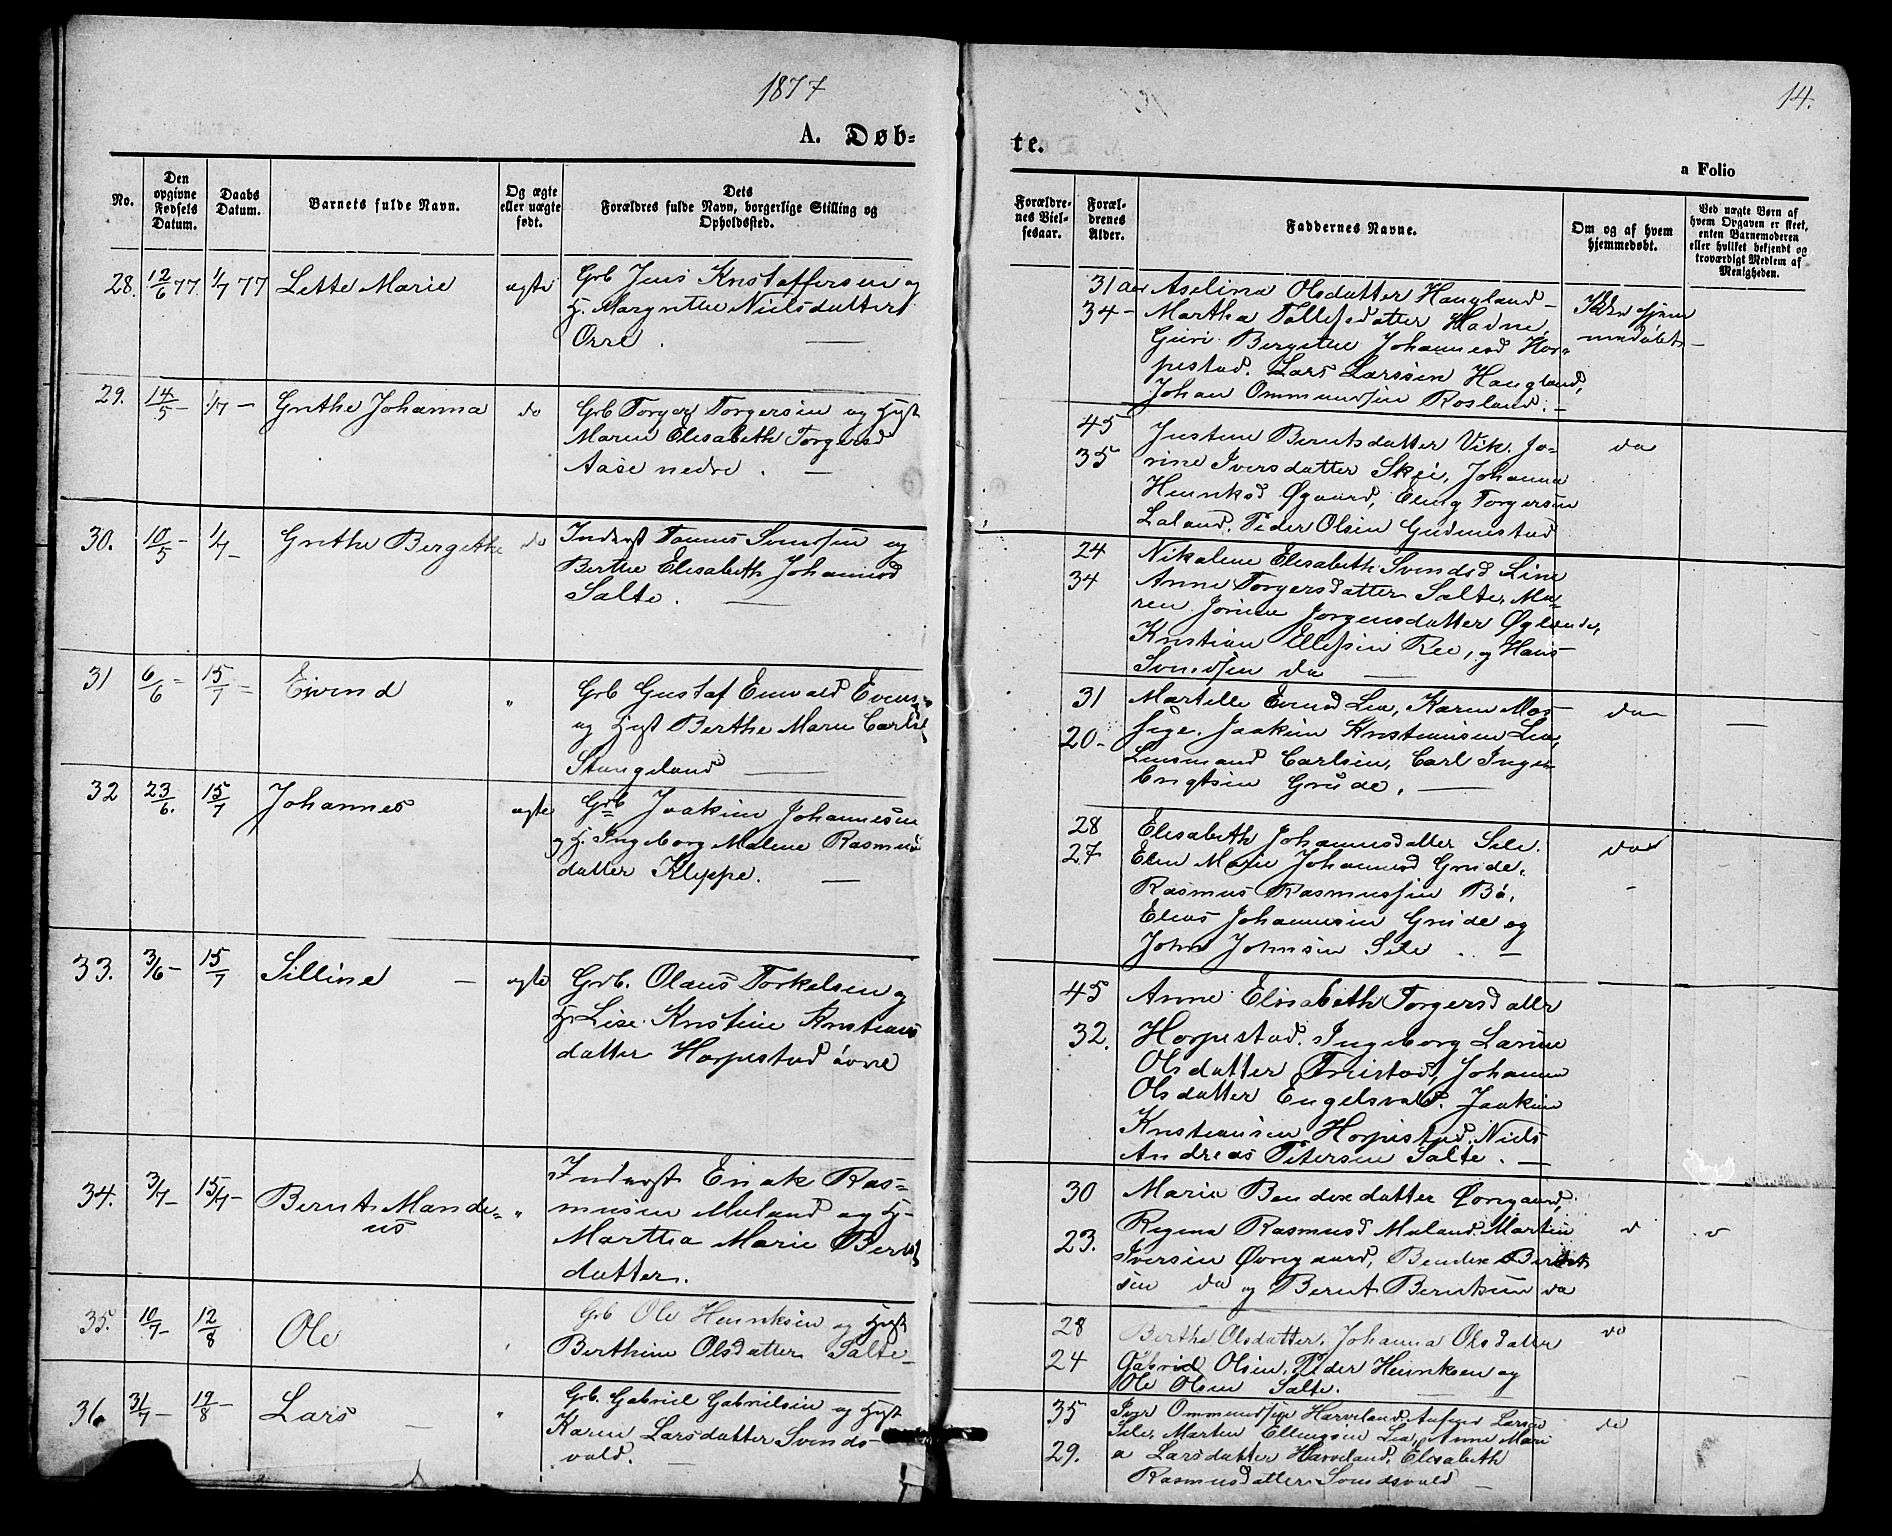 1877
A. Døb=
No.
Den opgivne Fødsels Datum.
Daabs Datum.
Barnets fulde Navn.
Og ægte eller uægte født.
Dets Forældres fulde Navn, borgerlige Stilling og Opholdssted.
28. 12/6 77. 1/7 77 Lette Marie ægte Grb Jens Kristoffersen og
H. Margrethe Nielsdatter
Orre. —
29. 14/5 - 1/7 - Grethe Johanna do Grb Torger Torgersen og Hust
Maren Elisabeth Torgersd
Aase nedre. —
30. 10/5 - 1/7 - Grethe Bergethe do Inderst Tønnes Svendsen og
Berthe Elisabeth Johannesd
Salte. —
31 6/6 = 15/7 = Eivind " Grb Gustaf Enevald
og Hust Berthe Marie
Stangeland —
32 23/6. 15/7 Johannes ægte Grb Joakim Johannesen
og H. Ingeborg Malene Rasmus
datter Kleppe. —
33. 3/6 - 15/7 Silline — ægte Grb. Olaus Torkelsen og
H. Lise Kristine Kristians
datter Horpestad øvre
34. 3/7 - 15/7 - Bernt Mande=
us " Inderst Enok Ras=
musen Meland og H.
Martha Marie Bernts
datter.
35. 10/7 - 12/8 Ole Grb Ole Henriksen og Hust
Berthine Olsdatter Salte -
36. 31/7 - 19/8 - Lars — " Grb. Gabriel Gabrielsen og Hust
Karen Larsdatter Svends-
vald. —
14.
te.
a Folio
Forældrenes Vielsesaar.
Forældrenes Alder.
Faddernes Navne.
Om og af hvem hjemmedøbt.
Ved uægte Børn af hvem Opgaven er skeet, enten Barnemoderen eller hvilket bekjendt og troværdigt Medlem af Menigheden.
31 aar Aselina Olsdatter Haugland - Ikke hjem
34 - Martha Tollefsdatter Hodne, medøbt -
Guri Bergithe Johannesd Hor=
pestad. Lars Larssen Haugland,
Johan Ommundsen Rosland. -
45 Justine Berntsdatter Vik. Jo- do
35 rine Iversdatter Skeie, Johanna
Henriksd Øgaard, Eling Torgersen
Laland. Peder Olsen Gudmestad
24 Nikaline Elisabeth Svendsd Line
34 Anne Torgersdatter Salte, Ma=
ren Jorine Jørgensdatter Øglænde,
Kristian Ellefsen Ree, og Hans
Svendsen do —
31 Martelle Lea, Karen Mos- do —
20 - sige. Joakim Kristiansen Lea,
Lensmand Carlsen, Carl Inge-
brigtsen Grude. —
28 Elisabeth Johannesdatter Sele. do
27 Elen Marie Johannesd Grude.
Rasmus Rasmussen Bø.
Elias Johannesen Grude og
John Johnsen Sele . . —
45 Anne Elisabeth Torgersdatter
32. Horpestad. Ingeborg Larine
Olsdatter Friestad, Johanna
Olsdatter Engelsvold. Joakim
Kristiansen Horpestad. Niels
Andreas Petersen Salte. —
30 Maria Bendixdatter Øvregaard,
23. Regina Rasmusd Meland. Martin
Iversen Øvregaard, Bendix Bernt
sen do og Bernt Berntsen do
28 Berthe Olsdatter. Johanna Olsdatter do
24 Gabriel Olsen. Peder Henriksen og
Ole Olsen Salte. —
35 Iver Ommundsen Harveland Larsen do
Sele, Martin Ellingsen Lea, Anne Mari
29. a Larsdatter Harveland. Elisabeth
Rasmusdatter Svendsvald —